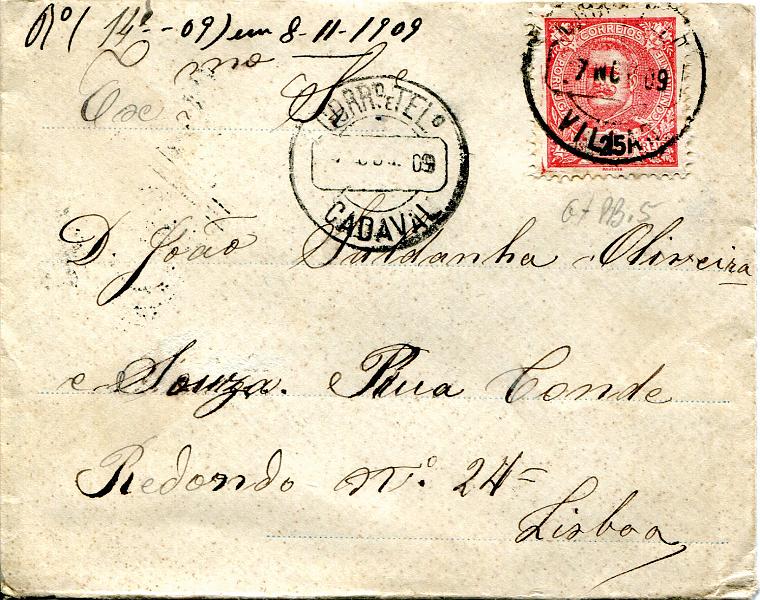 Rº ( 14º - 09) em 8-11-1909
CORREIOS
7 NOV 09
VILLAR
25
Exmo Sr
CORRº E TELº
09
CADAVAL
D. João Saldanha Oliveira
e Souza. Rua Conde
Redondo nº. 24=
Lisboa